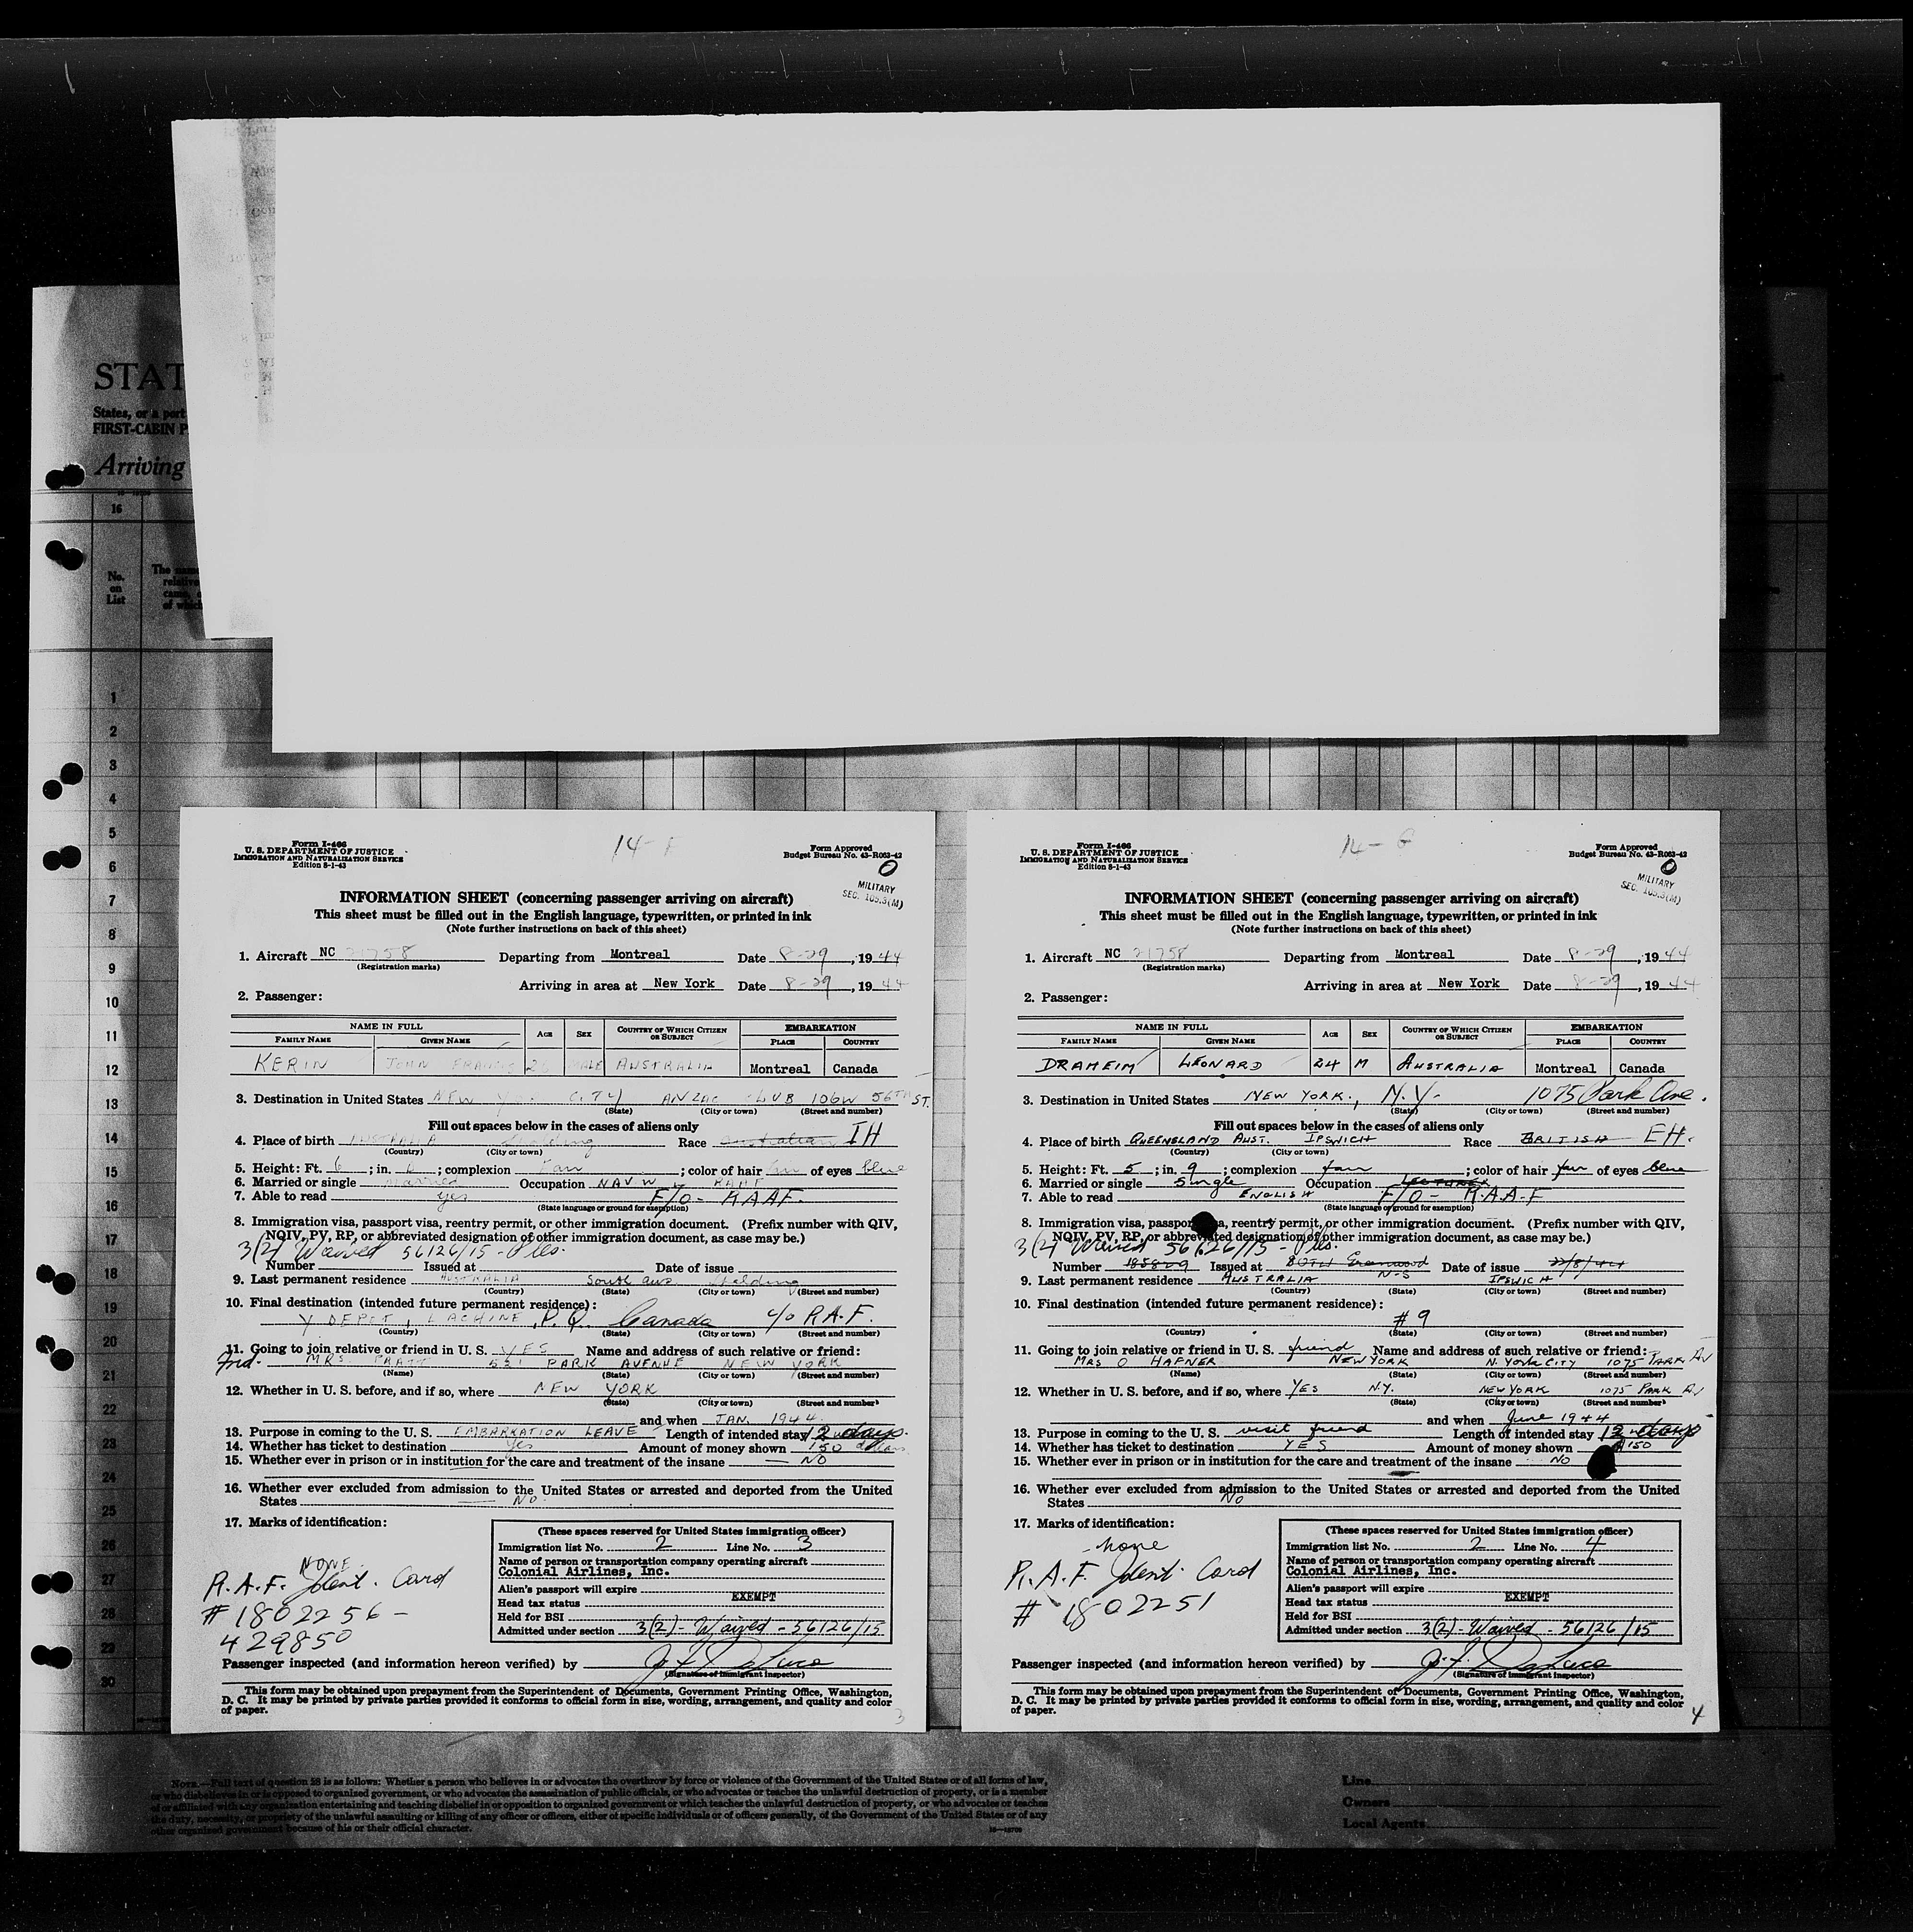 STAT
States, or a port
FIRST-CABIN P
Arriving
16
No.
on
List
The name
relative
came,
of which
1
2
3
4
5
6
7
8
9
10
11
12
13
14
15
16
17
18
19
20
21
22
23
24
25
26
27
28
29
30
Form I-466
U. S. DEPARTMENT OF JUSTICE
IMMIGRATION AND NATURALIZATION SERVICE
Edition 8-1-43
14-F
Form Approved
Budget Bureau No. 43-R063-42
0
MILITARY
SEC. 105.3(M)
INFORMATION SHEET (concerning passenger arriving on aircraft)
This sheet must be filled out in the English language, typewritten, or printed in ink
(Note further instructions on back of this sheet)
1. Aircraft NC 21758 Departing from Montreal Date 8-29, 1944
(Registration marks)
Arriving in area at New York Date 8-29, 1944
2. Passenger:
NAME IN FULL AGE SEX COUNTRY OF WHICH CITIZEN OR SUBJECT EMBARKATION
FAMILY NAME GIVEN NAME PLACE COUNTRY
KERIN JOHN FRANCIS 26 MALE AUSTRALIA Montreal Canada
3. Destination in United States NEW YORK CITY ANZAC CLUB 106W 56TH ST.
(State) (City or town) (Street and number)
Fill out spaces below in the cases of aliens only
4. Place of birth AUSTRALIA Race Australian IH
(Country) (City or town)
5. Height: Ft. 6; in. ; complexion Fair; color of hair of eyes blue
6. Married or single Married Occupation NAV W RAAF
7. Able to read yes F/O- RAAF.
(State language or ground for exemption)
8. Immigration visa, passport visa, reentry permit, or other immigration document. (Prefix number with QIV,
NQIV, PV, RP, or abbreviated designation of other immigration document, as case may be.)
3(2) Waived 56126/15
Number Issued at Date of issue
9. Last permanent residence AUSTRALIA South Aus
(Country) (State) (City or town) (Street and number)
10. Final destination (intended future permanent residence):
Y DEPOT, LACHINE, P.Q. Canada c/o R.A.F.
(Country) (State) (City or town) (Street and number)
11. Going to join relative or friend in U. S. YES Name and address of such relative or friend:
Frd. MRS PRATT 521 PARK AVENUE NEW YORK
(Name) (State) (City or town) (Street and number)
12. Whether in U. S. before, and if so, where NEW YORK
(State) (City or town) (Street and number)
and when JAN. 1944
13. Purpose in coming to the U. S. EMBARKATION LEAVE Length of intended stay 12 days.
14. Whether has ticket to destination Yes Amount of money shown 150 dollars
15. Whether ever in prison or in institution for the care and treatment of the insane — NO
16. Whether ever excluded from admission to the United States or arrested and deported from the United
States No.
17. Marks of identification:
NONE
R.A.F. Ident. Card
# 1802256 -
429850
(These spaces reserved for United States immigration officer)
Immigration list No. 2 Line No. 3
Name of person or transportation company operating aircraft
Colonial Airlines, Inc.
Alien's passport will expire
Head tax status EXEMPT
Held for BSI
Admitted under section 3(2)- Waived - 56126/15
Passenger inspected (and information hereon verified) by
(Signature of immigrant inspector)
This form may be obtained upon prepayment from the Superintendent of Documents, Government Printing Office, Washington,
D. C. It may be printed by private parties provided it conforms to official form in size, wording, arrangement, and quality and color
of paper.
3
Form I-466
U. S. DEPARTMENT OF JUSTICE
IMMIGRATION AND NATURALIZATION SERVICE
Edition 8-1-43
14-G
Form Approved
Budget Bureau No. 43-R063-42
0
MILITARY
SEC. 105.3(M)
INFORMATION SHEET (concerning passenger arriving on aircraft)
This sheet must be filled out in the English language, typewritten, or printed in ink
(Note further instructions on back of this sheet)
1. Aircraft NC 21758 Departing from Montreal Date 8-29, 1944
(Registration marks)
Arriving in area at New York Date 8-29, 1944
2. Passenger:
NAME IN FULL AGE SEX COUNTRY OF WHICH CITIZEN OR SUBJECT EMBARKATION
FAMILY NAME GIVEN NAME PLACE COUNTRY
DRAHEIM LEONARD 24 M AUSTRALIA Montreal Canada
3. Destination in United States NEW YORK, N.Y. 1075 Park Ave.
(State) (City or town) (Street and number)
Fill out spaces below in the cases of aliens only
4. Place of birth QUEENSLAND AUST. IPSWICH Race BRITISH EH.
(Country) (City or town)
5. Height: Ft. 5; in. 9; complexion fair; color of hair fair of eyes blue
6. Married or single Single Occupation
7. Able to read ENGLISH F/O- R.A.A.F
(State language or ground for exemption)
8. Immigration visa, passport visa, reentry permit, or other immigration document. (Prefix number with QIV,
NQIV, PV, RP, or abbreviated designation of other immigration document, as case may be.)
3(2) Waived 56126/15
Number 185809 Issued at N-S Date of issue 22/8/44
9. Last permanent residence AUSTRALIA IPSWICH
(Country) (State) (City or town) (Street and number)
10. Final destination (intended future permanent residence):
#9
(Country) (State) (City or town) (Street and number)
11. Going to join relative or friend in U. S. friend Name and address of such relative or friend:
MRS O HAPNER NEW YORK N. York City 1075 PARK AV
(Name) (State) (City or town) (Street and number)
12. Whether in U. S. before, and if so, where YES N.Y. NEW YORK 1075 PARK AV
(State) (City or town) (Street and number)
and when June 1944
13. Purpose in coming to the U. S. visit friend Length of intended stay 12 days
14. Whether has ticket to destination YES Amount of money shown 150
15. Whether ever in prison or in institution for the care and treatment of the insane NO
16. Whether ever excluded from admission to the United States or arrested and deported from the United
States No
17. Marks of identification:
none
R.A.F. Ident. Card
# 1802251
(These spaces reserved for United States immigration officer)
Immigration list No. 2 Line No. 4
Name of person or transportation company operating aircraft
Colonial Airlines, Inc.
Alien's passport will expire
Head tax status EXEMPT
Held for BSI
Admitted under section 3(2)- Waived - 56126/15
Passenger inspected (and information hereon verified) by
(Signature of immigrant inspector)
This form may be obtained upon prepayment from the Superintendent of Documents, Government Printing Office, Washington,
D. C. It may be printed by private parties provided it conforms to official form in size, wording, arrangement, and quality and color
of paper.
4
NOTE.—Full text of question 28 is as follows: Whether a person who believes in or advocates the overthrow by force or violence of the Government of the United States or of all forms of law,
or who disbelieves in or is opposed to organized government, or who advocates the assassination of public officials, or who advocates or teaches the unlawful destruction of property, or is a member
of or affiliated with any organization entertaining and teaching disbelief in or opposition to organized government or which teaches the unlawful destruction of property, or who advocates or teaches
the duty, necessity, or propriety of the unlawful assaulting or killing of any officer or officers, either of specific individuals or of officers generally, of the Government of the United States or of any
other organized government because of his or their official character.
Line
Owners
Local Agents